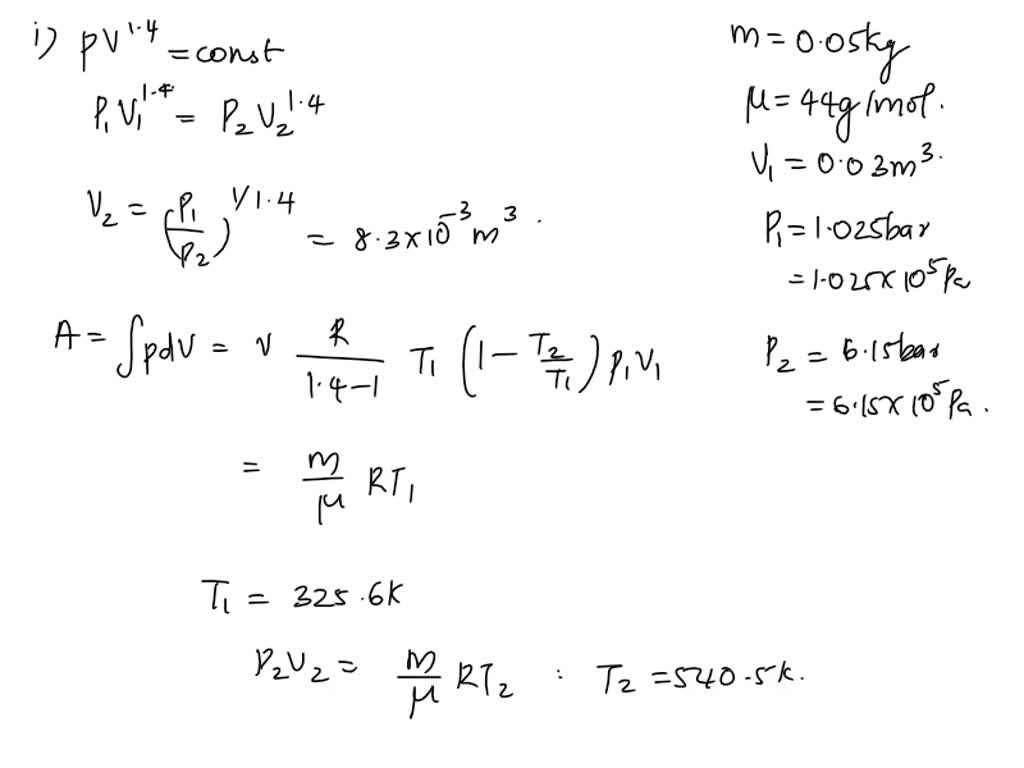 i) PV^1.4 = const
P₁V₁^1.4 = P₂V₂^1.4
V₂ = (P₁/P₂)^1/1.4 = 8.3×10⁻³ m³.
A = ∫pdV = ν R/(1.4-1) T₁ (1 - T₂/T₁) P₁V₁
= m/μ RT₁
T₁ = 325.6K
P₂V₂ = m/μ RT₂ : T₂ = 540.5K.
m = 0.05kg
μ = 44g/mol.
V₁ = 0.03m³.
P₁ = 1.025bar
= 1.025×10⁵Pa
P₂ = 6.15bar
= 6.15×10⁵Pa.